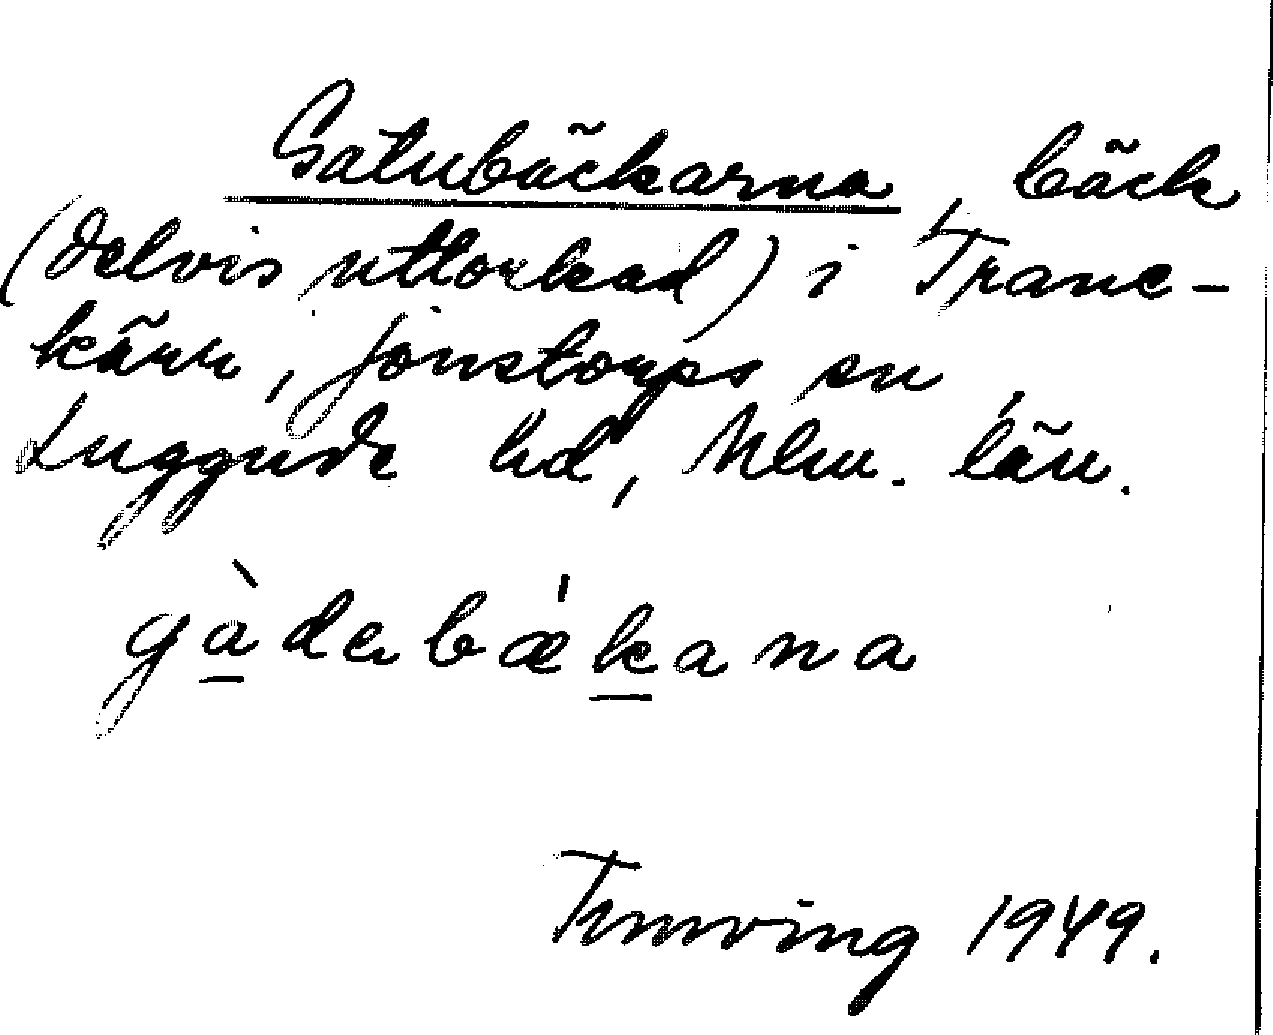 Gatubäckarna, bäck
(delvis uttorkad) i Trane-
kärr, Jonstorps sn,
Luggude hd, Mlm. län.
gàdebǽkana
1949.